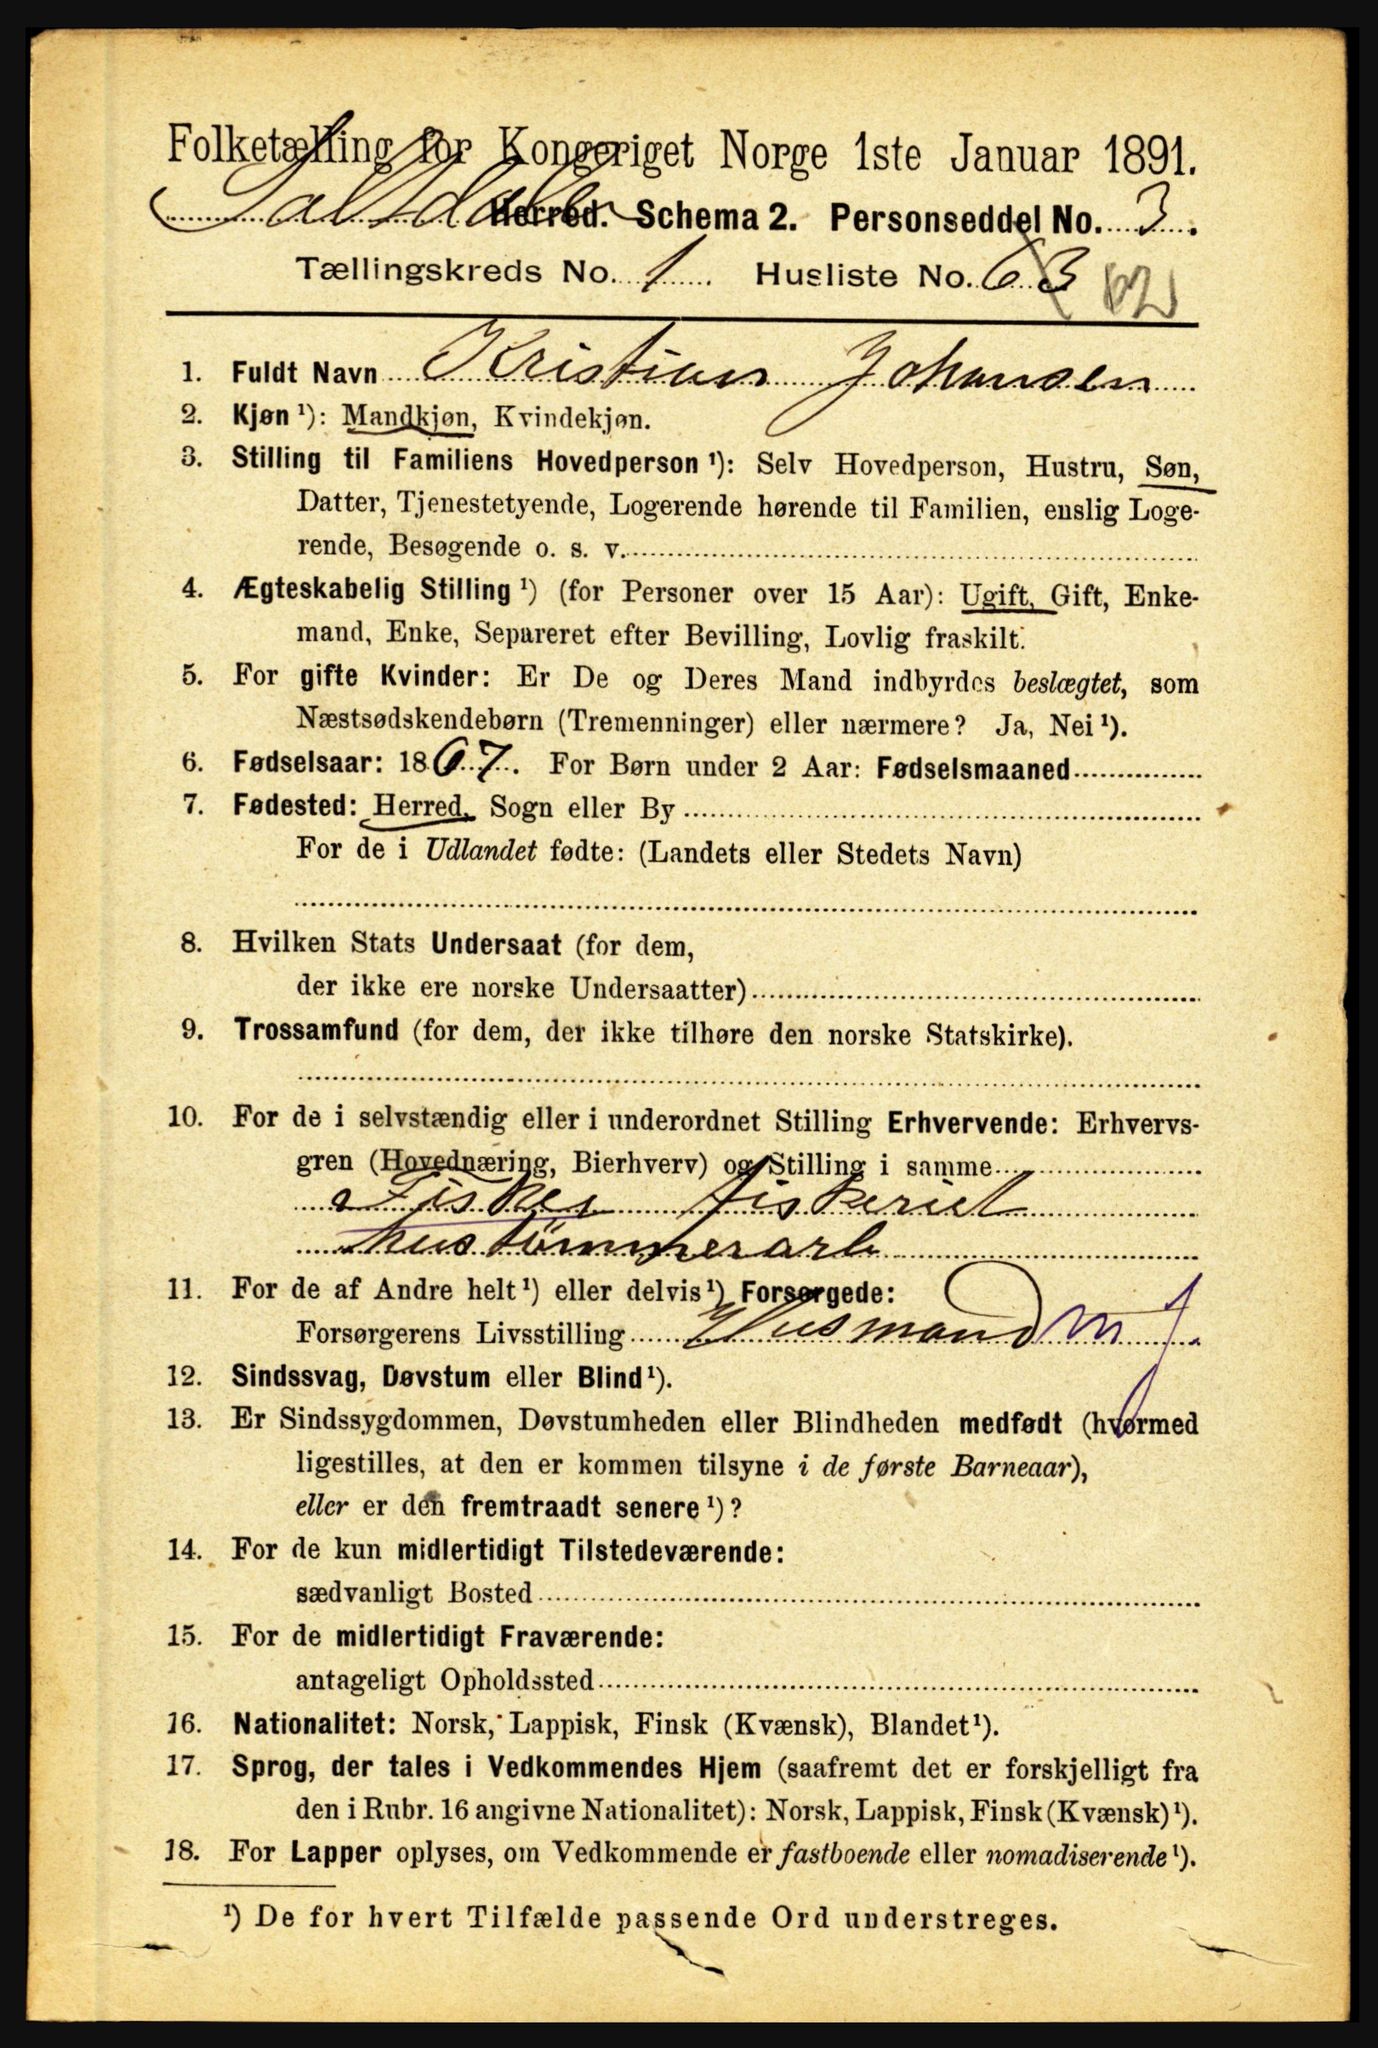 Folketælling for Kongeriget Norge 1ste Januar 1891.
Saltdalen Herred. Schema 2. Personseddel No. 3.
Tællingskreds No. 1 Husliste No. 63 62
1. Fuldt Navn Kristian Johansen
2. Kjøn ¹): Mandkjøn, Kvindekjøn.
3. Stilling til Familiens Hovedperson ¹): Selv Hovedperson, Hustru, Søn,
Datter, Tjenestetyende, Logerende hørende til Familien, enslig Loge-
rende, Besøgende o. s. v.
4. Ægteskabelig Stilling ¹) (for Personer over 15 Aar): Ugift, Gift, Enke-
mand, Enke, Separeret efter Bevilling, Lovlig fraskilt.
5. For gifte Kvinder: Er De og Deres Mand indbyrdes beslægtet, som
Næstsødskendebørn (Tremenninger) eller nærmere? Ja, Nei ¹).
6. Fødselsaar: 1867. For Børn under 2 Aar: Fødselsmaaned
7. Fødested: Herred, Sogn eller By
For de i Udlandet fødte: (Landets eller Stedets Navn)
8. Hvilken Stats Undersaat (for dem,
der ikke ere norske Undersaatter)
9. Trossamfund (for dem, der ikke tilhøre den norske Statskirke).
10. For de i selvstændig eller i underordnet Stilling Erhvervende: Erhvervs-
gren (Hovednæring, Bierhverv) og Stilling i samme
Fisker fiskeriet
hustømmerarb
11. For de af Andre helt ¹) eller delvis ¹) Forsørgede:
Forsørgerens Livsstilling Husmand m j
12. Sindssvag, Døvstum eller Blind ¹).
13. Er Sindssygdommen, Døvstumheden eller Blindheden medfødt (hvormed
ligestilles, at den er kommen tilsyne i de første Barneaar),
eller er den fremtraadt senere ¹)?
14. For de kun midlertidigt Tilstedeværende:
sædvanligt Bosted
15. For de midlertidigt Fraværende:
antageligt Opholdssted
16. Nationalitet: Norsk, Lappisk, Finsk (Kvænsk), Blandet ¹).
17. Sprog, der tales i Vedkommendes Hjem (saafremt det er forskjelligt fra
den i Rubr. 16 angivne Nationalitet): Norsk, Lappisk, Finsk (Kvænsk) ¹).
18. For Lapper oplyses, om Vedkommende er fastboende eller nomadiserende ¹).
¹) De for hvert Tilfælde passende Ord understreges.